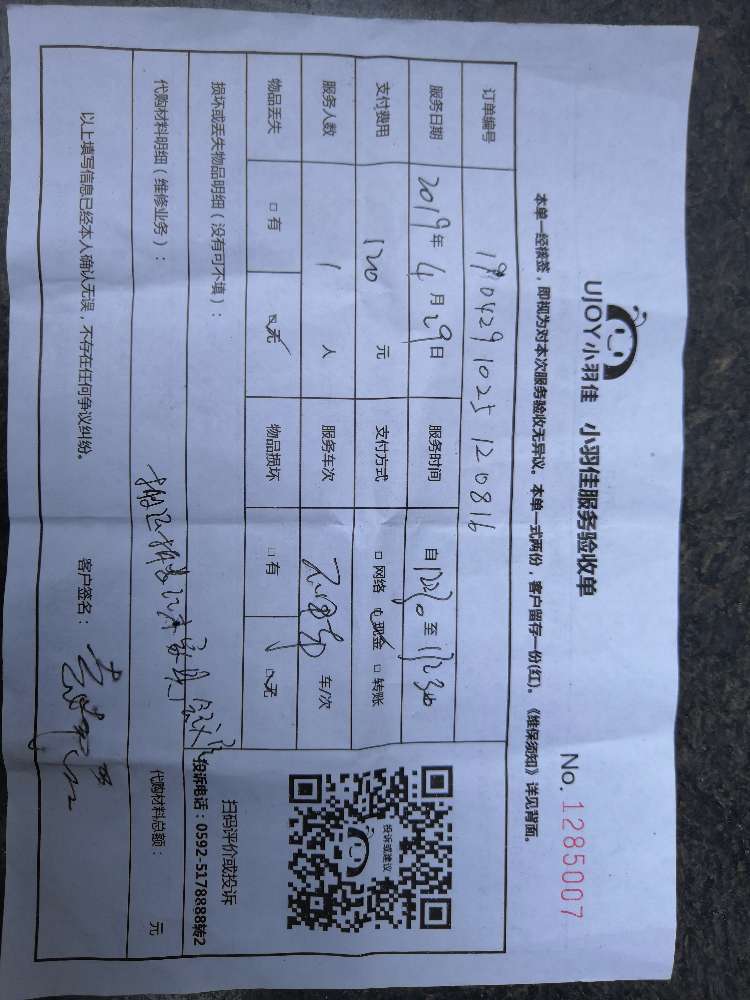 UJOY小羽佳 小羽佳服务验收单
No. 1285007
本单一经核签，即视为对本次服务验收无异议。本单一式两份，客户留存一份(红)。《维保须知》详见背面。
订单编号 1904291025120816
服务日期 2019年4月29日 服务时间 自 至
支付费用 120元 支付方式 □网络 □现金 □转账
服务人数 1人 服务车次 车/次
物品丢失 □有 □无 物品损坏 □有 □无
损坏或丢失物品明细（没有可不填）：
投诉或建议
扫码评价或投诉
投诉电话：0592-5178888转2
代购材料明细（维修业务）：
代购材料总额： 元
以上填写信息已经本人确认无误，不存在任何争议纠纷。 客户签名：